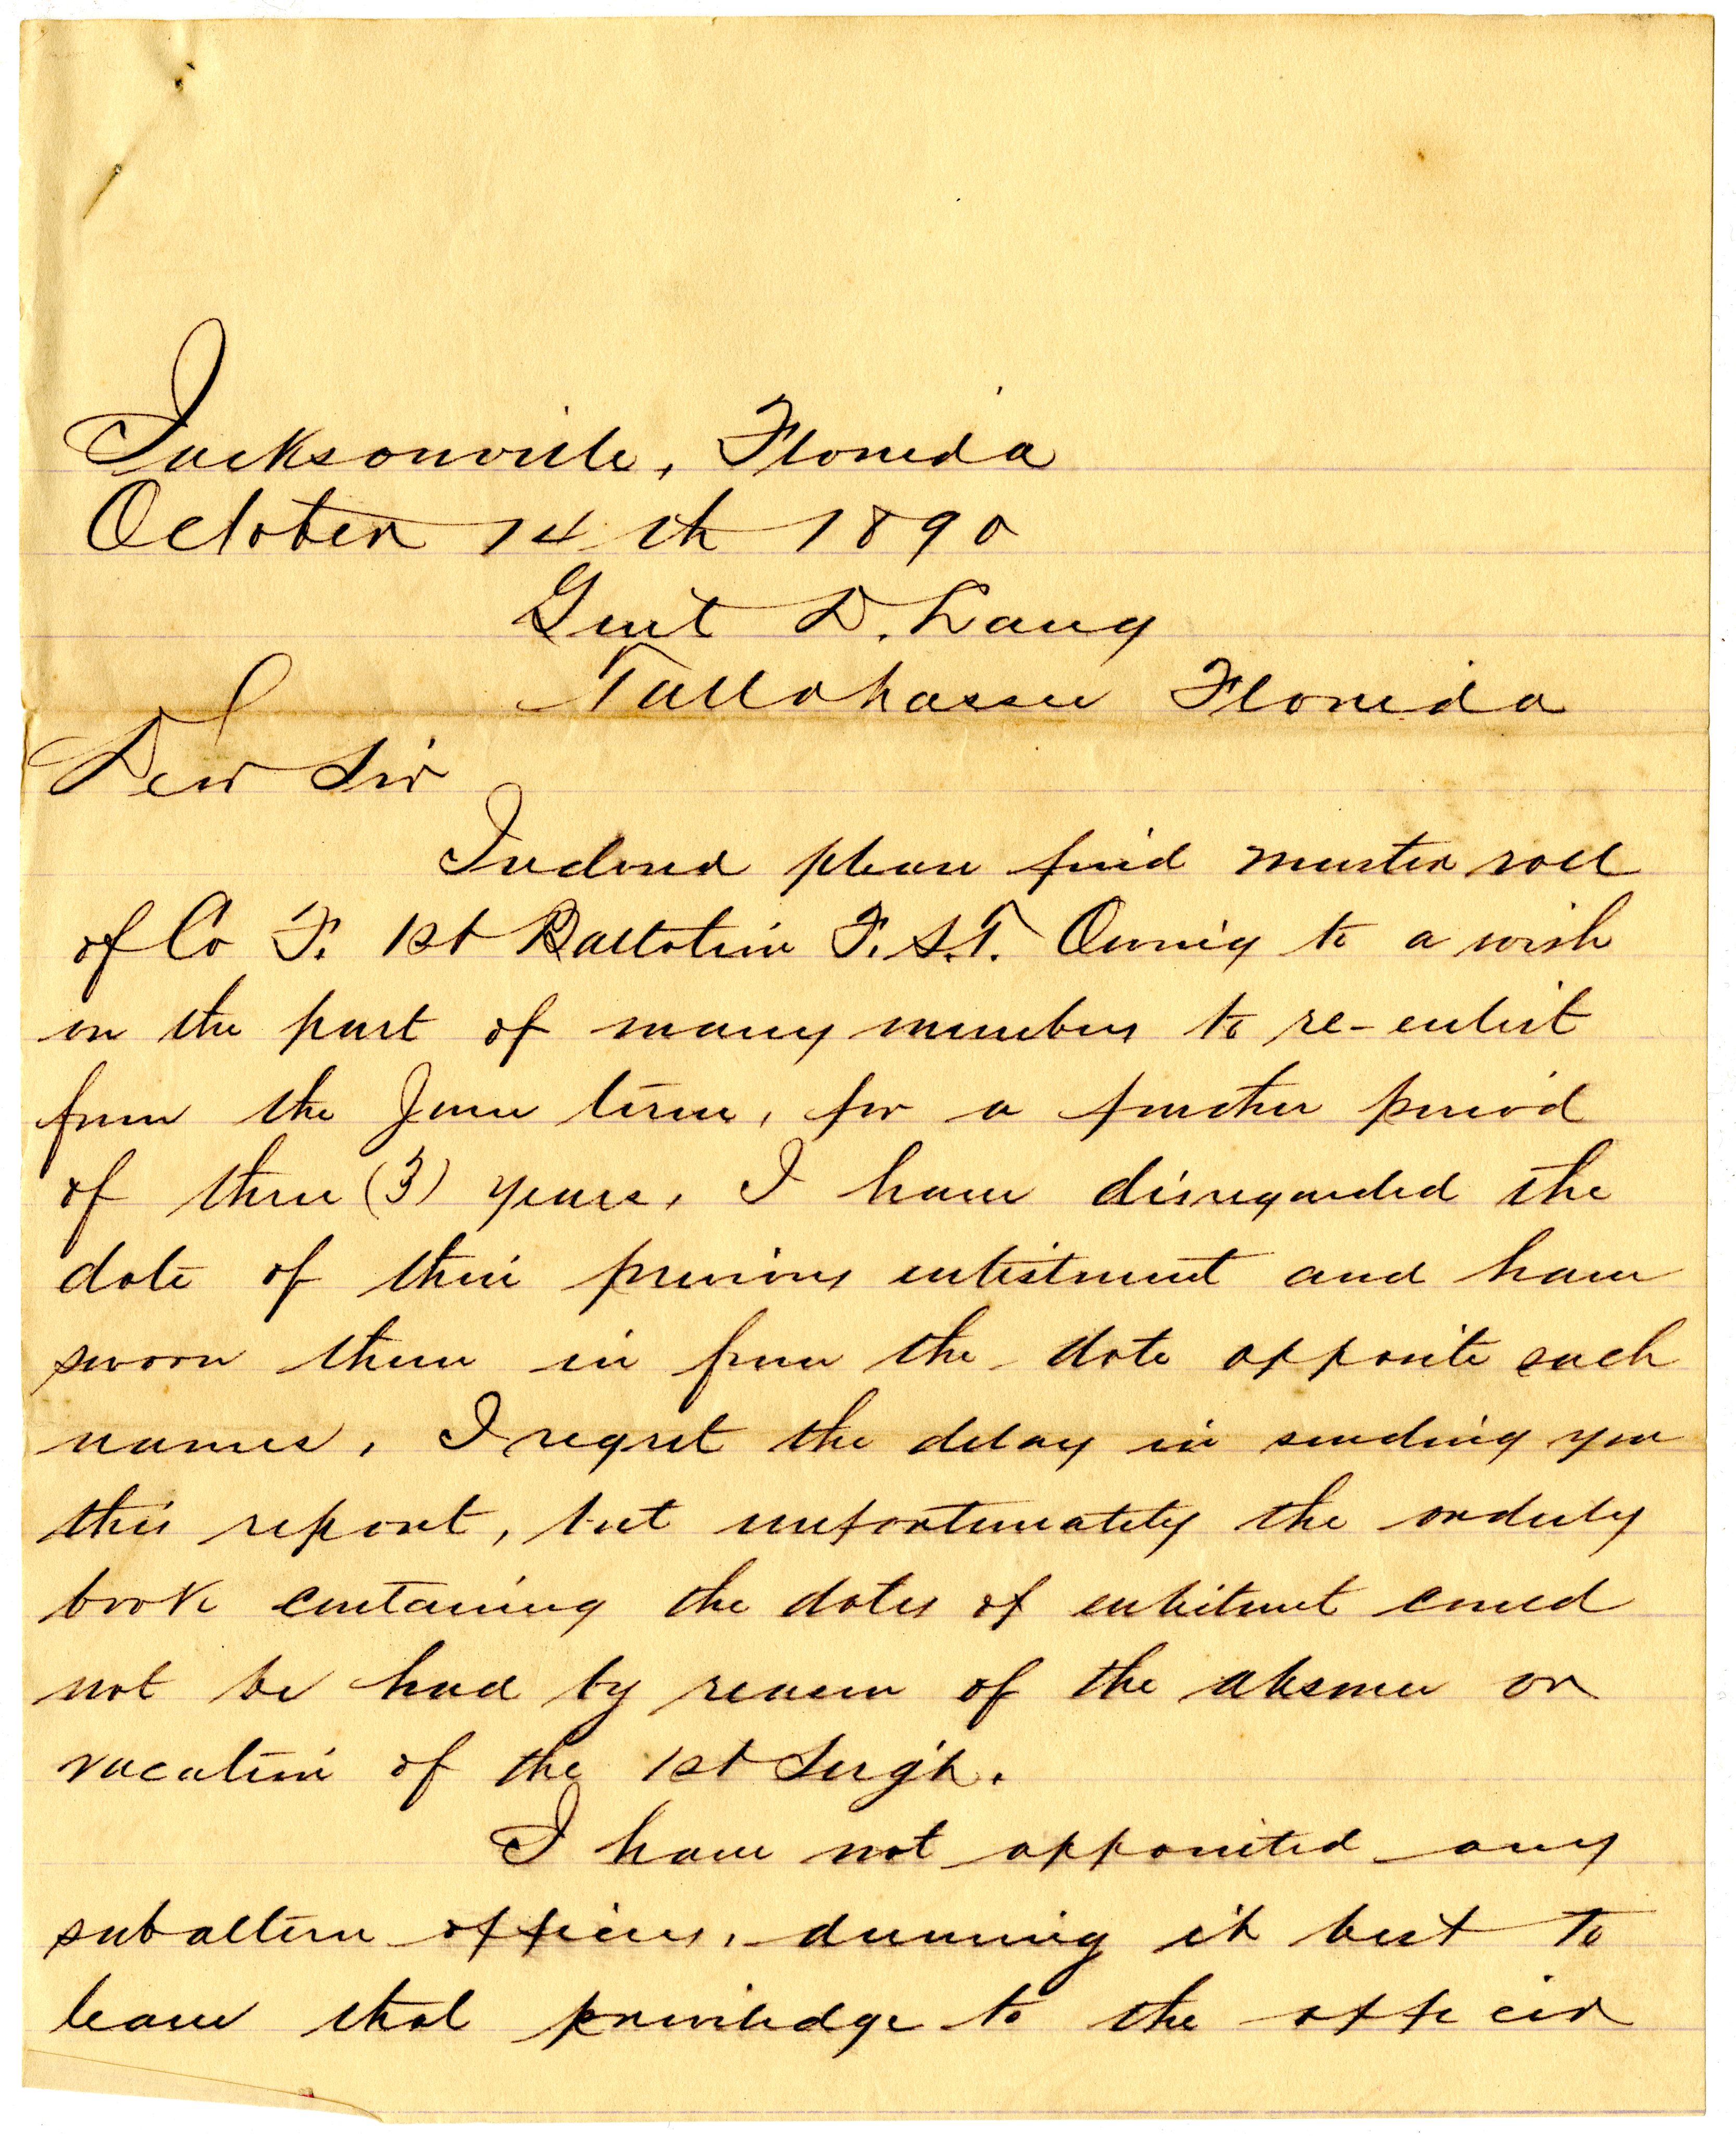 Jacksonville, Florida
October 14th 1890
Genl D. Lang
Tallahassee Florida
Dear Sir
Inclosed please find muster roll
of Co F. 1st Battalion F.S.T. Owing to a wish
on the part of many members to re-enlist
from the June term, for a further period
of three (3) years, I have disregarded the
date of their previous enlistment and have
sworn them in from the date opposite each
names, I regret the delay in sending you
this report, but unfortunately the orderly
book containing the dates of enlistment could
not be had by reason of the absence on
vacation of the 1st Sergt.
I have not appointed any
subaltern officers, deeming it best to
leave that priviledge to the officer